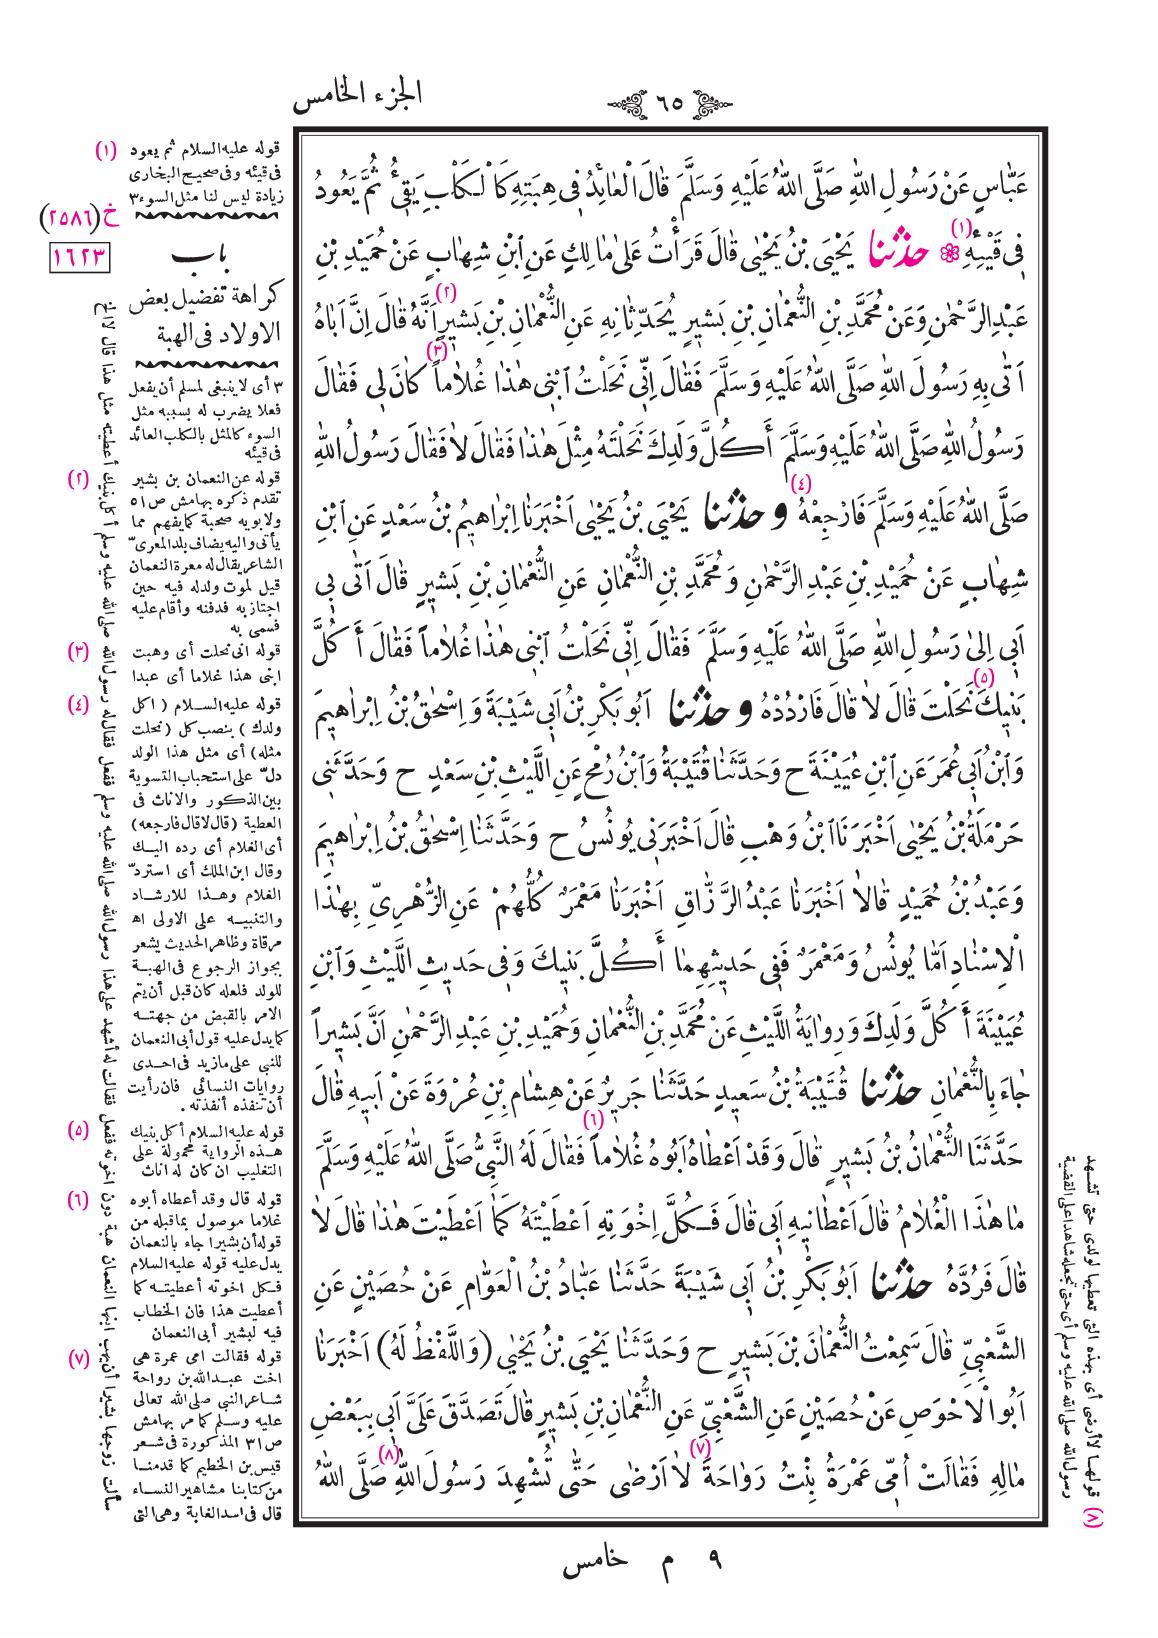 الجزء الخامس
٦٥
عَبَّاسٍ عَنْ رَسُولِ اللهِ صَلَّى اللهُ عَلَيْهِ وَسَلَّمَ قَالَ الْعَائِدُ فِي هِبَتِهِ كَالْكَلْبِ يَقِيءُ ثُمَّ يَعُودُ
فِي قَيْئِهِ (١) حدثنا يَحْيَى بْنُ يَحْيَى قَالَ قَرَأْتُ عَلَى مَالِكٍ عَنِ ابْنِ شِهَابٍ عَنْ حُمَيْدِ بْنِ
عَبْدِ الرَّحْمٰنِ وَعَنْ مُحَمَّدِ بْنِ النُّعْمَانِ بْنِ بَشِيرٍ يُحَدِّثَانِهِ عَنِ النُّعْمَانِ بْنِ بَشِيرٍ (٢) أَنَّهُ قَالَ إِنَّ أَبَاهُ
أَتَى بِهِ رَسُولَ اللهِ صَلَّى اللهُ عَلَيْهِ وَسَلَّمَ فَقَالَ إِنِّي نَحَلْتُ ابْنِي هٰذَا غُلَاماً (٣) كَانَ لِي فَقَالَ
رَسُولُ اللهِ صَلَّى اللهُ عَلَيْهِ وَسَلَّمَ أَكُلَّ وَلَدِكَ نَحَلْتَهُ مِثْلَ هٰذَا فَقَالَ لَا فَقَالَ رَسُولُ اللهِ
صَلَّى اللهُ عَلَيْهِ وَسَلَّمَ فَارْجِعْهُ (٤) و حدثنا يَحْيَى بْنُ يَحْيَى أَخْبَرَنَا إِبْرَاهِيمُ بْنُ سَعْدٍ عَنِ ابْنِ
شِهَابٍ عَنْ حُمَيْدِ بْنِ عَبْدِ الرَّحْمٰنِ وَمُحَمَّدِ بْنِ النُّعْمَانِ عَنِ النُّعْمَانِ بْنِ بَشِيرٍ قَالَ أَتَى بِي
أَبِي إِلَى رَسُولِ اللهِ صَلَّى اللهُ عَلَيْهِ وَسَلَّمَ فَقَالَ إِنِّي نَحَلْتُ ابْنِي هٰذَا غُلَاماً فَقَالَ أَكُلَّ
بَنِيكَ (٥) نَحَلْتَ قَالَ لَا قَالَ فَارْدُدْهُ و حدثنا أَبُو بَكْرِ بْنُ أَبِي شَيْبَةَ وَإِسْحٰقُ بْنُ إِبْرَاهِيمَ
وَابْنُ أَبِي عُمَرَ عَنِ ابْنِ عُيَيْنَةَ ح وَحَدَّثَنَا قُتَيْبَةُ وَابْنُ رُمْحٍ عَنِ اللَّيْثِ بْنِ سَعْدٍ ح وَحَدَّثَنِي
حَرْمَلَةُ بْنُ يَحْيَى أَخْبَرَنَا ابْنُ وَهْبٍ قَالَ أَخْبَرَنِي يُونُسُ ح وَحَدَّثَنَا إِسْحٰقُ بْنُ إِبْرَاهِيمَ
وَعَبْدُ بْنُ حُمَيْدٍ قَالَا أَخْبَرَنَا عَبْدُ الرَّزَّاقِ أَخْبَرَنَا مَعْمَرٌ كُلُّهُمْ عَنِ الزُّهْرِيِّ بِهٰذَا
الْإِسْنَادِ أَمَّا يُونُسُ وَمَعْمَرٌ فَفِي حَدِيثِهِمَا أَكُلَّ بَنِيكَ وَفِي حَدِيثِ اللَّيْثِ وَابْنِ
عُيَيْنَةَ أَكُلَّ وَلَدِكَ وَرِوَايَةُ اللَّيْثِ عَنْ مُحَمَّدِ بْنِ النُّعْمَانِ وَحُمَيْدِ بْنِ عَبْدِ الرَّحْمٰنِ أَنَّ بَشِيراً
جَاءَ بِالنُّعْمَانِ حدثنا قُتَيْبَةُ بْنُ سَعِيدٍ حَدَّثَنَا جَرِيرٌ عَنْ هِشَامِ بْنِ عُرْوَةَ عَنْ أَبِيهِ قَالَ
حَدَّثَنَا النُّعْمَانُ بْنُ بَشِيرٍ قَالَ وَقَدْ أَعْطَاهُ أَبُوهُ غُلَاماً (٦) فَقَالَ لَهُ النَّبِيُّ صَلَّى اللهُ عَلَيْهِ وَسَلَّمَ
مَا هٰذَا الْغُلَامُ قَالَ أَعْطَانِيهِ أَبِي قَالَ فَكُلَّ إِخْوَتِهِ أَعْطَيْتَهُ كَمَا أَعْطَيْتَ هٰذَا قَالَ لَا
قَالَ فَرُدَّهُ حدثنا أَبُو بَكْرِ بْنُ أَبِي شَيْبَةَ حَدَّثَنَا عَبَّادُ بْنُ الْعَوَّامِ عَنْ حُصَيْنٍ عَنِ
الشَّعْبِيِّ قَالَ سَمِعْتُ النُّعْمَانَ بْنَ بَشِيرٍ ح وَحَدَّثَنَا يَحْيَى بْنُ يَحْيَى (وَاللَّفْظُ لَهُ) أَخْبَرَنَا
أَبُو الْأَحْوَصِ عَنْ حُصَيْنٍ عَنِ الشَّعْبِيِّ عَنِ النُّعْمَانِ بْنِ بَشِيرٍ قَالَ تَصَدَّقَ عَلَيَّ أَبِي بِبَعْضِ
مَالِهِ فَقَالَتْ أُمِّي عَمْرَةُ بِنْتُ رَوَاحَةَ (٧) لَا أَرْضَى حَتَّى تُشْهِدَ رَسُولَ اللهِ (٨) صَلَّى اللهُ
(١) قوله عليه السلام ثم يعود
فى قيئه وفى صحيح البخارى
زيادة ليس لنا مثل السوء ٣
خ (٢٥٨٦)
١٦٢٣
باب
كراهة تفضيل بعض
الاولاد فى الهبة
٣ أى لا ينبغى لمسلم أن يفعل
فعلا يضرب له بسببه مثل
السوء كالمثل بالكلب العائد
فى قيئه
(٢) قوله عن النعمان بن بشير
تقدم ذكره بهامش ص ٥١
ولابويه صحبة كما يفهم مما
يأتى واليه يضاف بلد المعرىّ
الشاعر يقال له معرة النعمان
قيل لموت ولد له فيه حين
اجتاز به فدفنه وأقام عليه
فسمى به
(٣) قوله انى نحلت أى وهبت
ابنى هذا غلاما أى عبدا
(٤) قوله عليه السلام ( اكل
ولدك ) بنصب كل ( نحلت
مثله ) أى مثل هذا الولد
دلّ على استحباب التسوية
بين الذكور والاناث فى
العطية ( قال لا قال فارجعه )
أى الغلام أى رده اليك
وقال ابن الملك أى استردّ
الغلام وهذا للارشاد
والتنبيه على الاولى اه
مرقاة وظاهر الحديث يشعر
بجواز الرجوع فى الهبة
للولد فلعله كان قبل أن يتم
الامر بالقبض من جهته
كما يدل عليه قول أبى النعمان
للنبى على ما زيد فى احدى
روايات النسائى فان رأيت
أن تنفذه أنفذته .
(٥) قوله عليه السلام أكل بنيك
هذه الرواية محمولة على
التغليب ان كان له اناث
(٦) قوله قال وقد أعطاه أبوه
غلاما موصول بما قبله من
قوله أن بشيرا جاء بالنعمان
يدل عليه قوله عليه السلام
فكل اخوته أعطيته كما
أعطيت هذا فان الخطاب
فيه لبشير أبى النعمان
(٧) قوله فقالت امى عمرة هى
اخت عبدالله بن رواحة
شاعر النبى صلى الله تعالى
عليه وسلم كما مر بهامش
ص ٣١ المذكورة فى شعر
قيس بن الخطيم كما قدمنا
من كتابنا مشاهير النساء
قال فى اسد الغابة وهى التى
سألت زوجها بشيرا أن يهب ابنها النعمان هبة دون اخوته ففعل فقالت له أشهد على هذا رسول الله صلى الله عليه وسلم ففعل فقال له رسول الله صلى الله عليه وسلم أكل بنيك أعطيته مثل هذا قال لا الخ
(٨) قولها لا أرضى أى بهذه التى تعطيها لولدى حتى تشهد
رسول الله صلى الله عليه وسلم أى حتى تجعله شاهدا على القضية
٩ م خامس